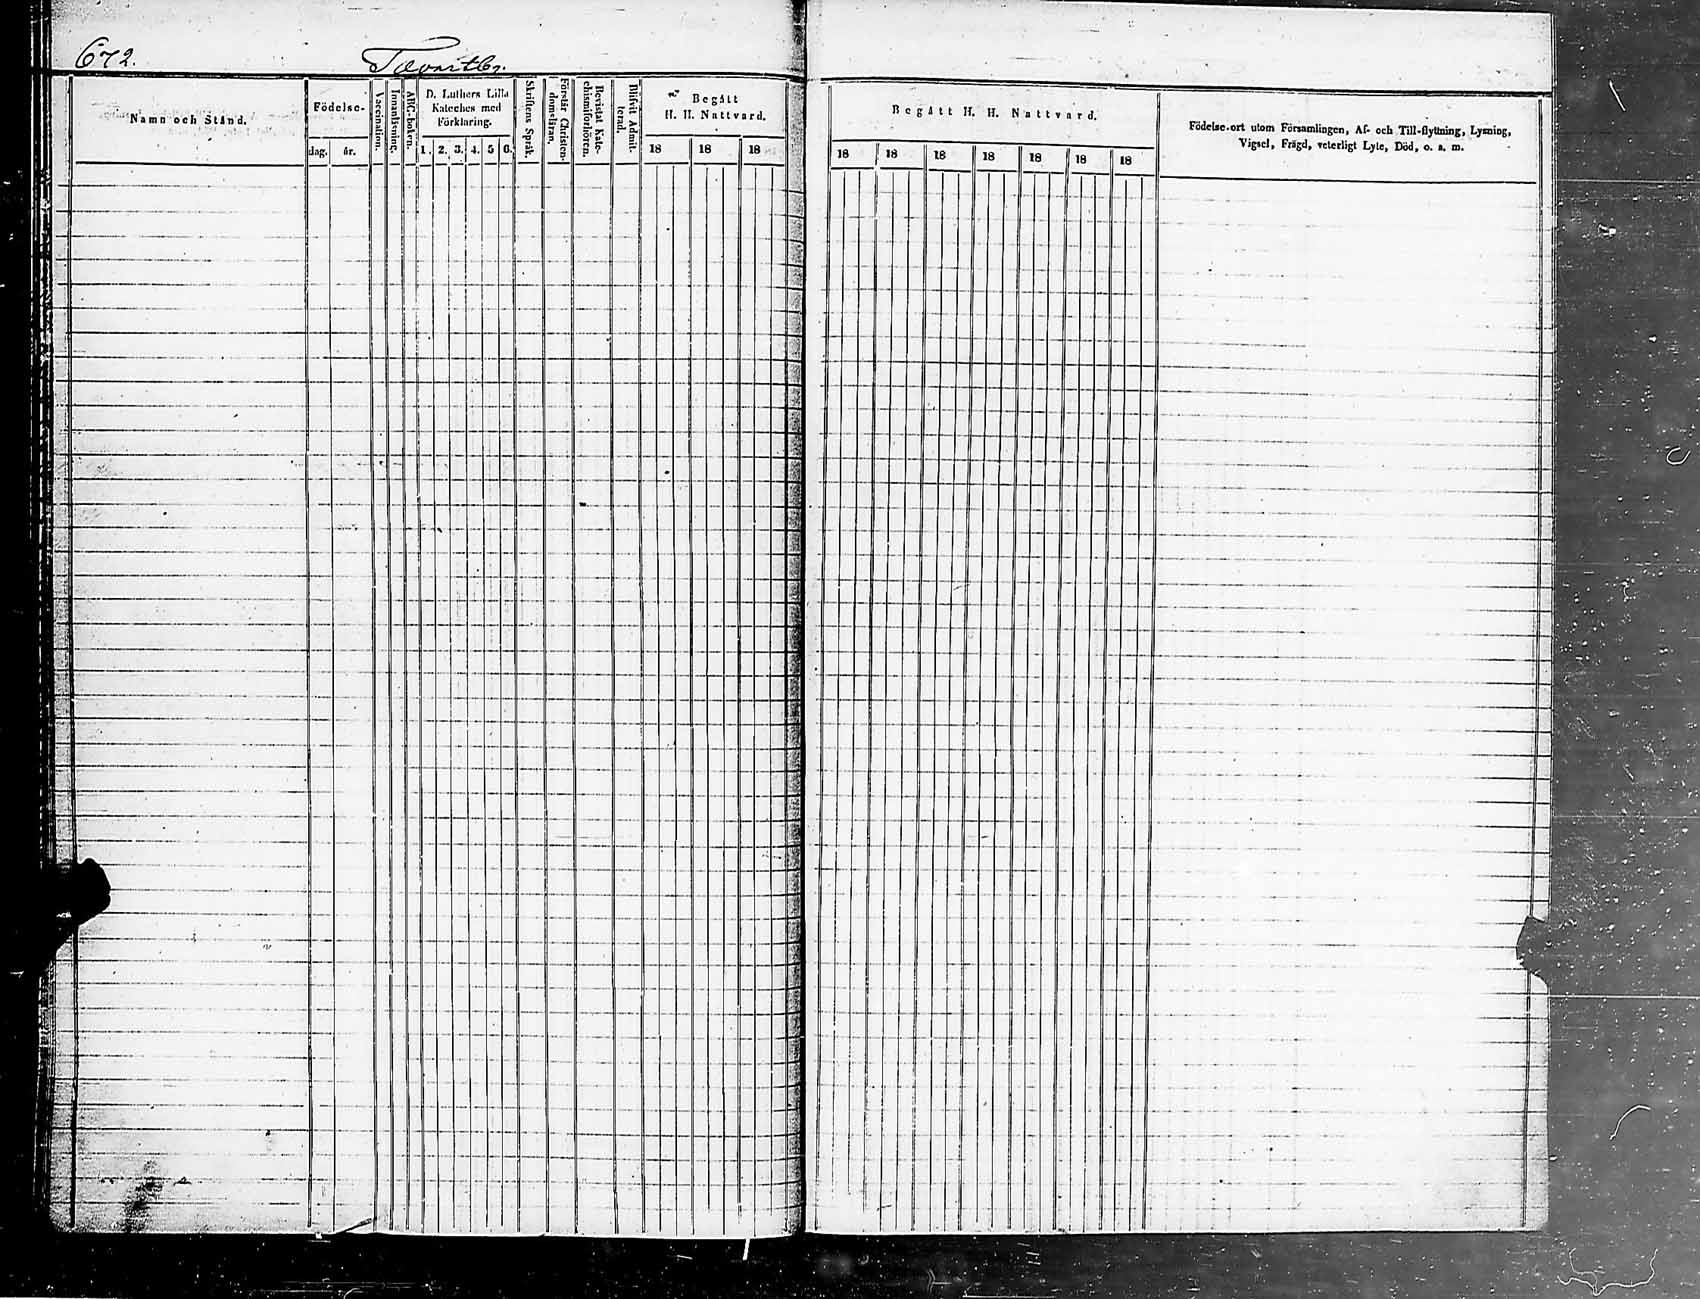 672.
Namn och Stånd.
Födelse-
dag. år.
Vaccination.
Innanläsning.
ABC-boken.
D. Luthers Lilla
Kateches med
Förklaring.
1. 2. 3. 4. 5 6.
Skriftens Språk.
Förstår Christen-
domsläran.
Bevistat Kate-
chismiförhören.
Blifvit Admit-
terad.
Begått
H. H. Nattvard.
18 18 18
Begått H. H. Nattvard.
18 18 18 18 18 18 18
Födelse-ort utom Församlingen, Af- och Till-flyttning, Lysning,
Vigsel, Frägd, veterligt Lyte, Död, o. s. m.